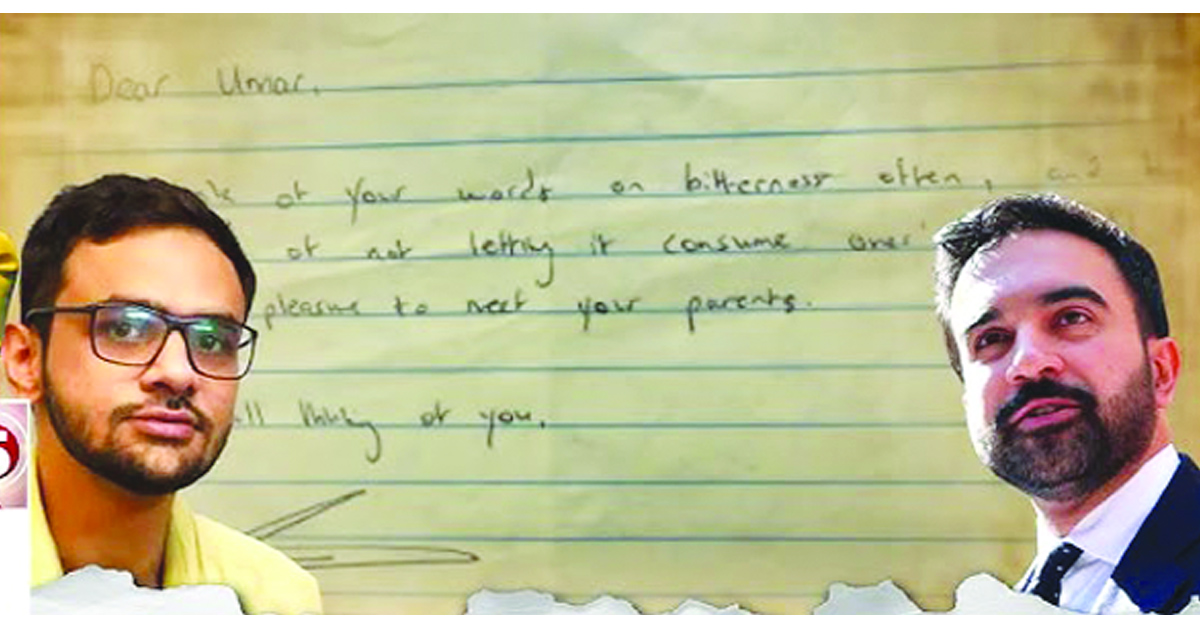 Dear Umar,
of your words on bitterness often, and
of not letting it consume ones'
pleasure to meet your parents.
thinking of you,
5